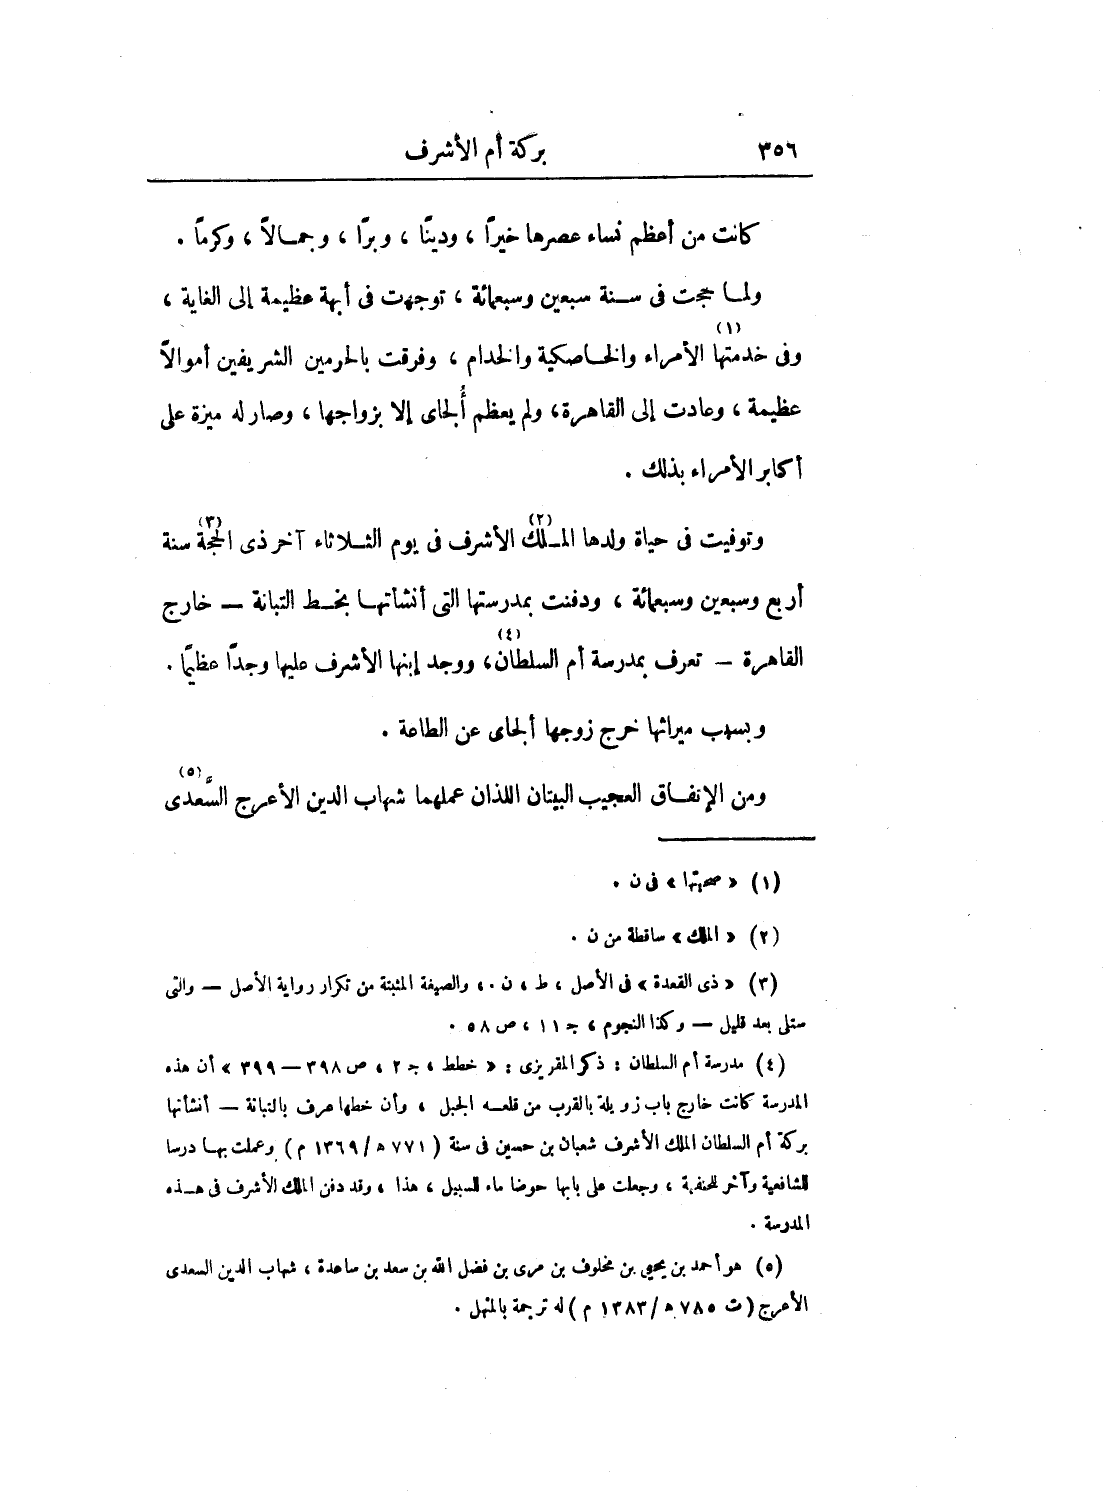 ٣٥٦ بركة أم الأشرف
كانت من أعظم نساء عصرها خيرًا ، ودينًا ، وبرًا ، وجمـالاً ، وكرمًا .
ولمـا حجت فى سـنة سبعين وسبعمائة ، توجهت فى أبهة عظيمة إلى الغاية ،
وفى خدمتها (١) الأمراء والخـاصكية والخدام ، وفرقت بالحرمين الشريفين أموالاً
عظيمة ، وعادت إلى القاهرة، ولم يعظم أُلجاى إلا بزواجها ، وصار له ميزة على
أكابر الأمراء بذلك .
وتوفيت فى حياة ولدها المـلك (٢) الأشرف فى يوم الثـلاثاء آخر ذى الحجة (٣) سنة
أربع وسبعين وسبعمائة ، ودفنت بمدرستها التى أنشأتهـا بخـط التبانة – خارج
القاهرة – تعرف بمدرسة أم السلطان (٤)، ووجد إبنها الأشرف عليها وجدًا عظيمًا .
وبسبب ميراثها خرج زوجها ألجاى عن الطاعة .
ومن الإنفـاق العجيب البيتان اللذان عملهما شهاب الدين الأعرج السَّعدى (٥)
(١) « صحبتها » فى ن .
(٢) « الملك » ساقطة من ن .
(٣) « ذى القعدة » فى الأصل ، ط ، ن ٠، والصيغة المثبتة من تكرار رواية الأصل – والتى
ستلى بعد قليل – وكذا النجوم ، جـ ١١ ، ص ٥٨ .
(٤) مدرسة أم السلطان : ذكر المقريزى : « خطط ، جـ ٢ ، ص ٣٩٨ – ٣٩٩ » أن هذه
المدرسة كانت خارج باب زويلة بالقرب من قلعـه الجبل ، وأن خطها عرف بالتبانة – أنشأتها
بركة أم السلطان الملك الأشرف شعبان بن حسين فى سنة ( ٧٧١ ه / ١٣٦٩ م ) وعملت بهـا درسا
للشافعية وآخر للحنفية ، وجعلت على بابها حوضا ماء للسبيل ، هذا ، وقد دفن الملك الأشرف فى هـذه
المدرسة .
(٥) هو أحمد بن يحيى بن مخلوف بن مرى بن فضل الله بن سعد بن ساعدة ، شهاب الدين السعدى
الأعرج ( ت ٧٨٥ ه / ١٣٨٣ م ) له ترجمة بالمنهل .